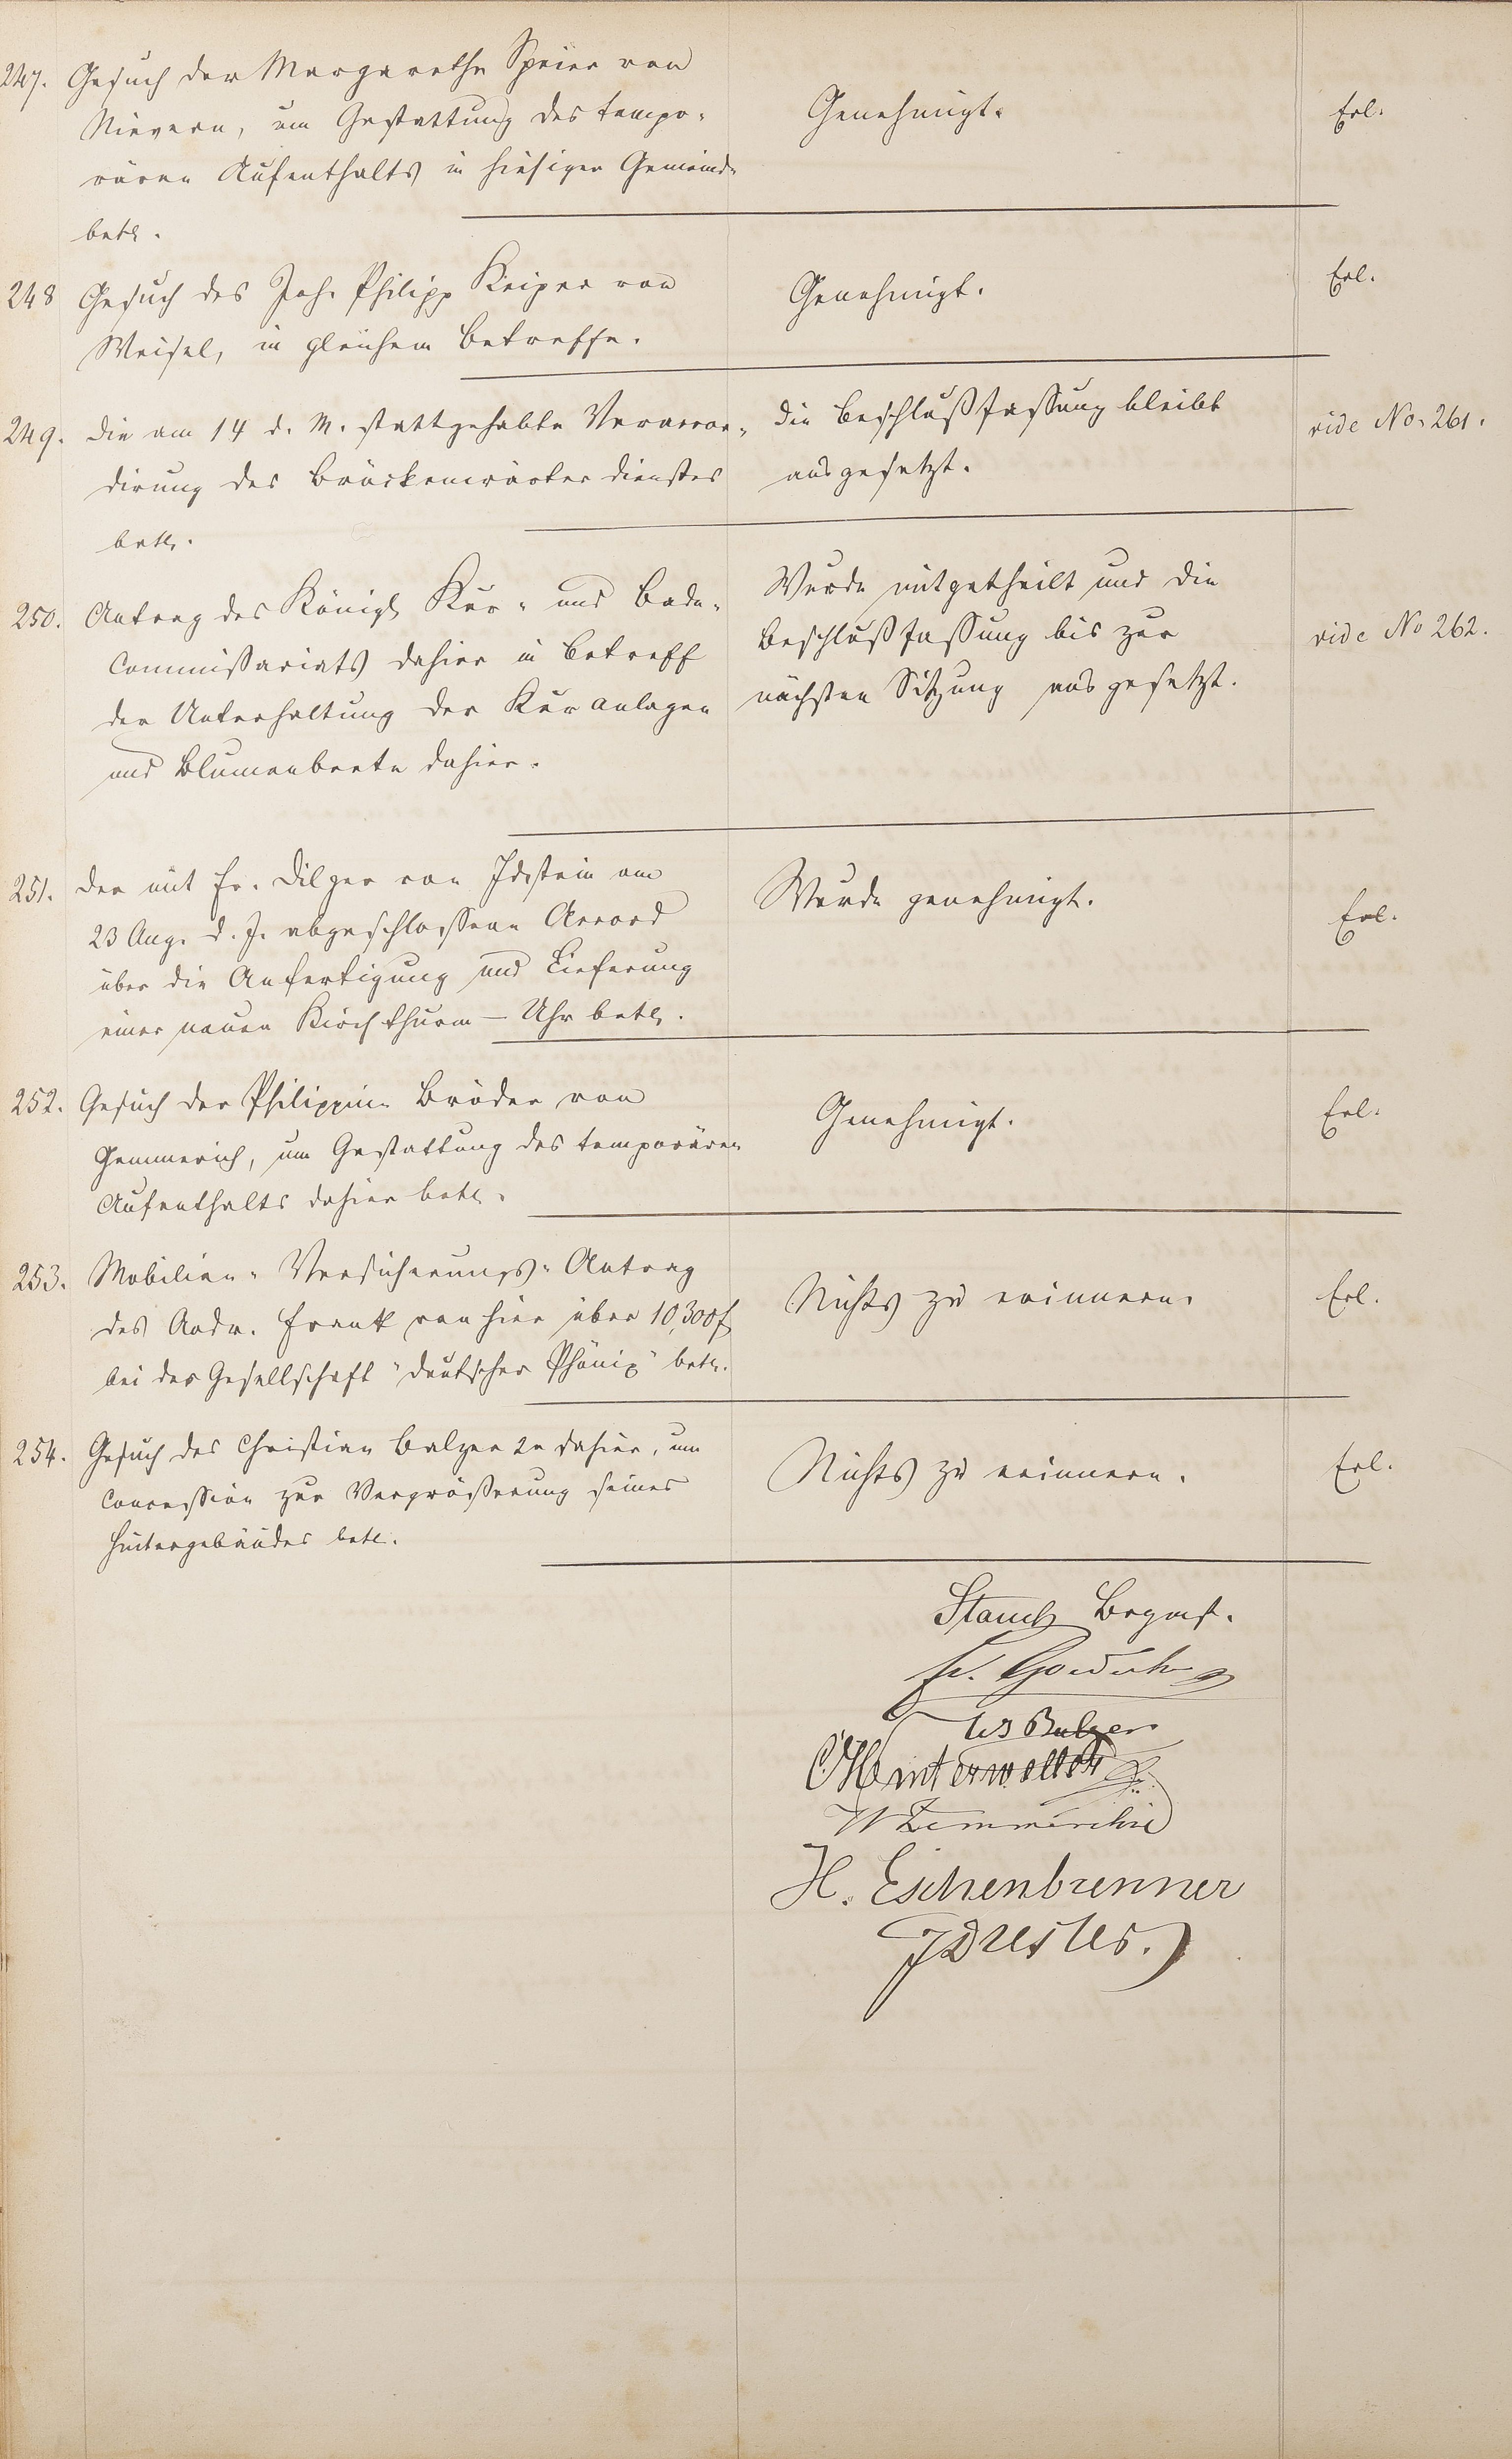 247. Gesuch der Margarethe Speier von
Nievern, um Gestattung des tempo-
rären Aufenthalts in hiesiger Gemeinde
betr.
Genehmigt.
Erl.
248 Gesuch des Joh. Philipp Keiper von
Weisel, in gleichem Betreffe.
Genehmigt.
Erl.
249. Die am 14 d. M. stattgehabte Veraccor-
dirung des Brückenwärter dienstes
betr.
Die Beschlußfassung bleibt
ausgesetzt.
vide No. 261.
250. Antrag des Königl Kur- und Bade-
Commissariats dahier in Betreff
der Unterhaltung der Kuranlagen
und Blumenbeete dahier.
Wurde mitgetheilt und die
Beschlußfassung bis zur
nächsten Sitzung ausgesetzt.
vide No 262.
251. Der mit Fr. Dilger von Idstein am
23 Aug. d. J. abgeschlossene Accord
über die Anfertigung und Lieferung
einer neuen Kirchthurm-Uhr betr.
Wurde genehmigt.
Erl.
252. Gesuch der Philippine Bröder von
Gemmerich, um Gestattung des temporären
Aufenthalts dahier betr.
Genehmigt.
Erl.
253. Mobilien-Versicherungs-Antrag
des Andr. Frank von hier über 10,300 f
bei der Gesellschaft "Deutscher Phönix" betr.
Nichts zu erinnern.
Erl.
254. Gesuch des Christian Balzer 2r dahier, um
Concession zur Vergrößerung seines
Hintergebäudes betr.
Nichts zu erinnern.
Erl.
Brgmst.
Fr.
W Balzer
C Hinterweller
W
H. Eschenbrenner
J Drestes.